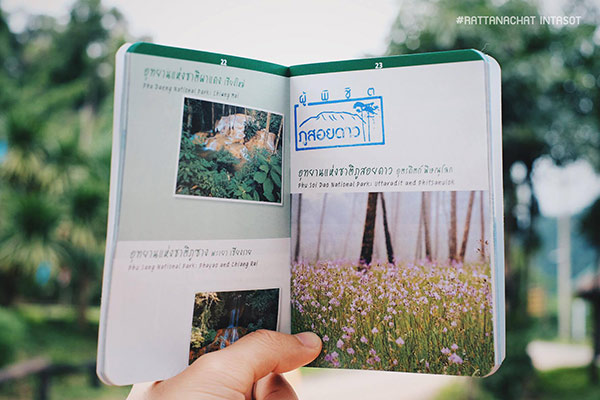 #RATTANACHAT INTASOT
22
อุทยานแห่งชาติผาแดง เชียงใหม่
Pha Daeng National Park: Chiang Mai
อุทยานแห่งชาติภูซาง พะเยา เชียงราย
Phu Sang National Park: Phayao and Chiang Rai
23
ผู้พิชิต
ภูสอยดาว
อุทยานแห่งชาติภูสอยดาว อุตรดิตถ์ พิษณุโลก
Phu Soi Dao National Park: Uttaradit and Phitsanulok